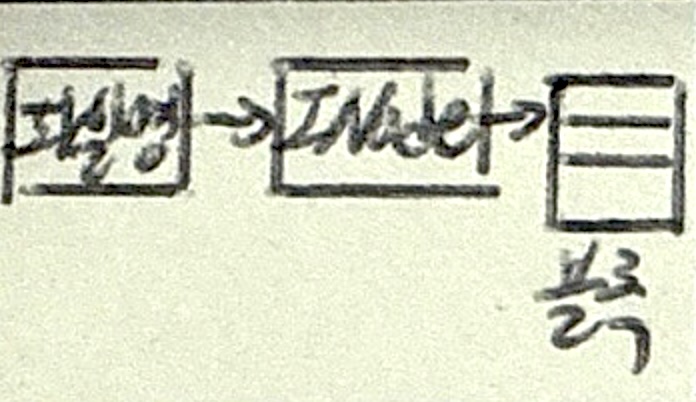 파일명 → INode → 
블록